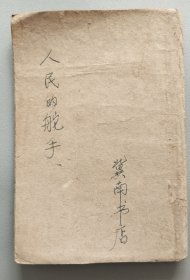 人民的舵手、
冀南书店